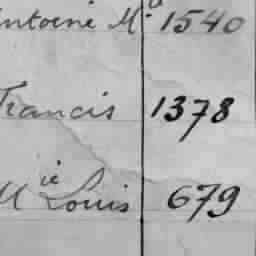 Antoine M. 1540
Francis 1378
M ie Louis 679